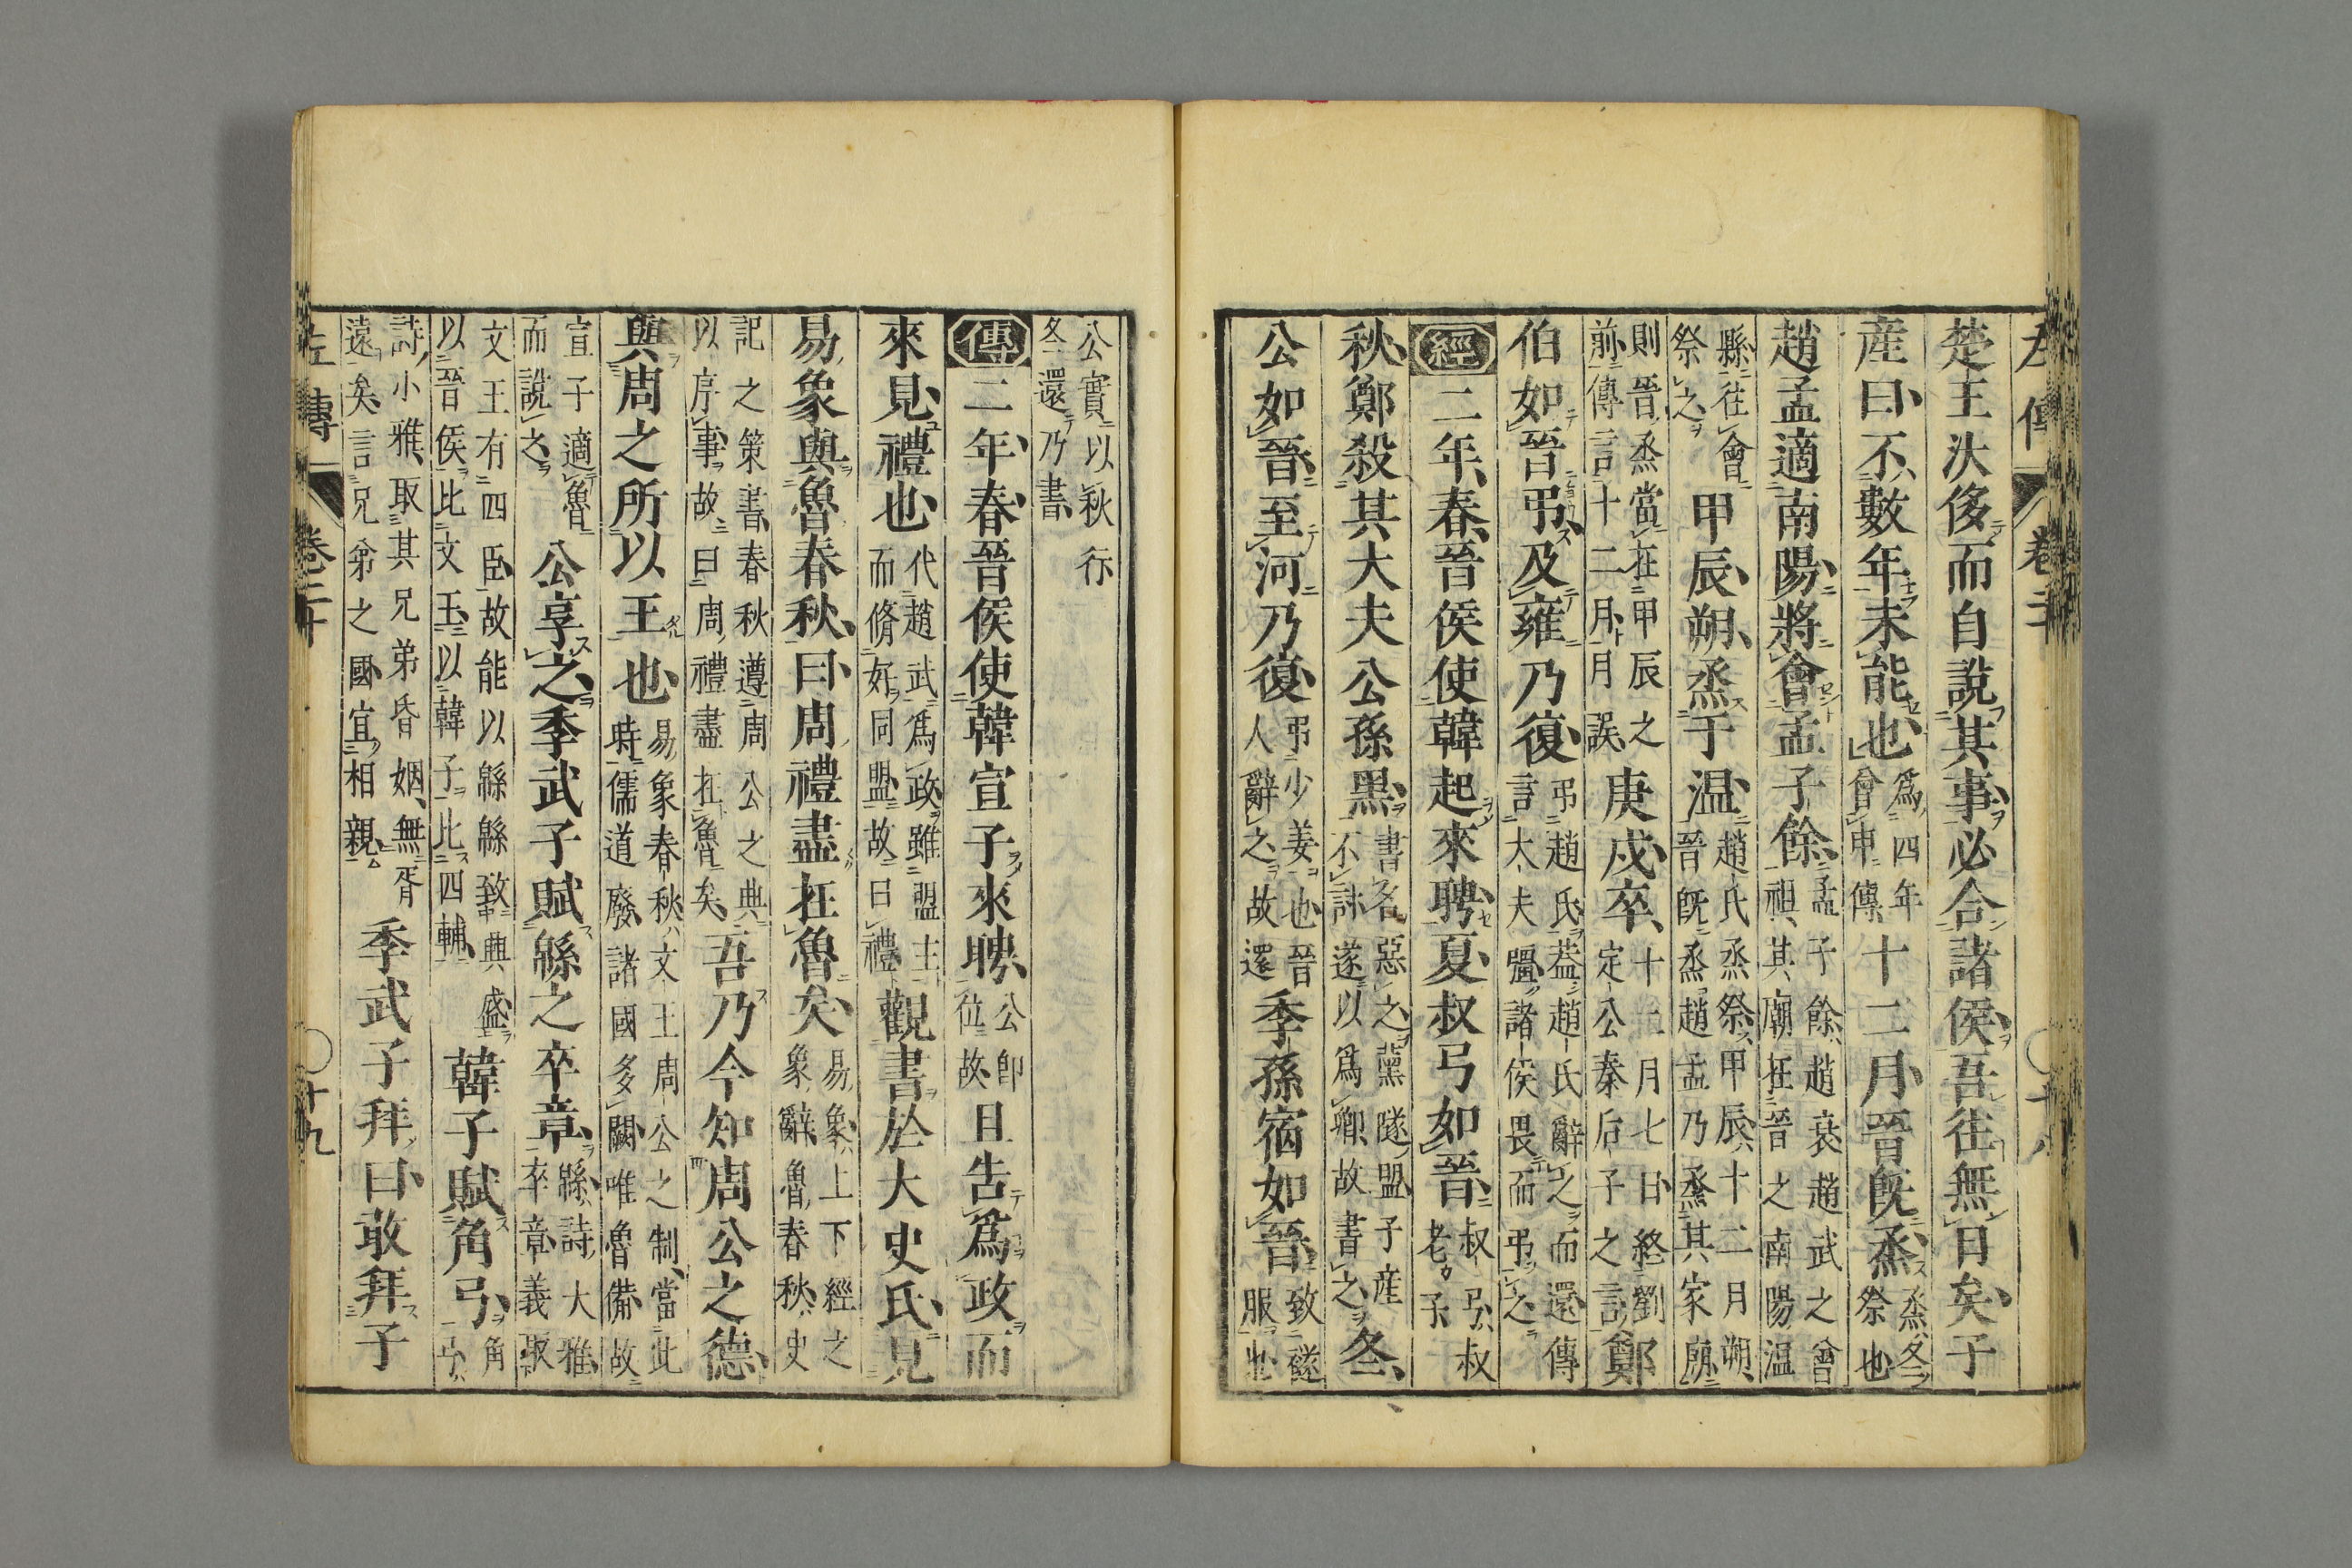 左傳 卷二十 ○十八
楚王汏侈而自說其事必合諸侯吾往無日矣子
産曰不數年未能也
爲四年
會申傳
十二月晉旣烝
烝冬
祭也
趙孟適南陽將會孟子餘
孟子餘趙衰趙武之曾
祖其廟在晉之南陽温
縣往會
祭之
甲辰朔烝于温
趙氏烝祭甲辰十二月朔
晉旣烝趙孟乃烝其家廟
則晉烝當在甲辰之
前傳言十二月月誤
庚戌卒
十二月七日終劉
定公秦后子之言
鄭
伯如晉弔及雍乃復
弔趙氏蓋趙氏辭之而還傳
言大夫彊諸侯畏而弔之
經二年春晉侯使韓起來聘夏叔弓如晉
叔弓叔
老子
秋鄭殺其大夫公孫黑
書名惡之薰隧盟子産
不誅遂以爲卿故書之
冬
公如晉至河乃復
弔少姜也晉
人辭之故還
季孫宿如晉
致襚
服也
公實以秋行
冬還乃書
傳二年春晉侯使韓宣子來聘
公卽
位故
且告爲政而
來見禮也
代趙武爲政雖盟主
而脩好同盟故曰禮
觀書於大史氏見
易象與魯春秋曰周禮盡在魯矣
易象上下經之
象辭魯春秋史
記之策書春秋遵周公之典
以序事故曰周禮盡在魯矣
吾乃今知周公之德
與周之所以王也
易象春秋文王周公之制當此
時儒道廢諸國多闕唯魯備故
宣子適魯
而說之
公享之季武子賦緜之卒章
緜詩大雅
卒章義取
文王有四臣故能以緜緜致興盛
以晉侯比文王以韓子比四輔
韓子賦角弓
角
弓
詩小雅取其兄弟昏姻無胥
遠矣言兄弟之國宜相親
季武子拜曰敢拜子
左傳 卷二十 ○十九